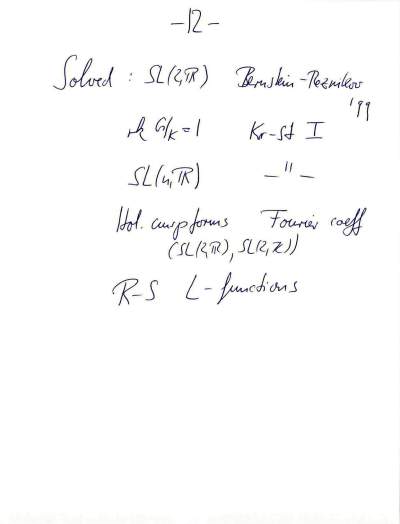 -12-
Solved : SL(2,ℝ) Bernstein-Reznikov
'99
rk G/K = 1 Kr-St I
SL(n,ℝ) — " —
Hol. cusp forms Fourier coeff
(SL(2,ℝ), SL(2,ℤ))
R-S L-functions